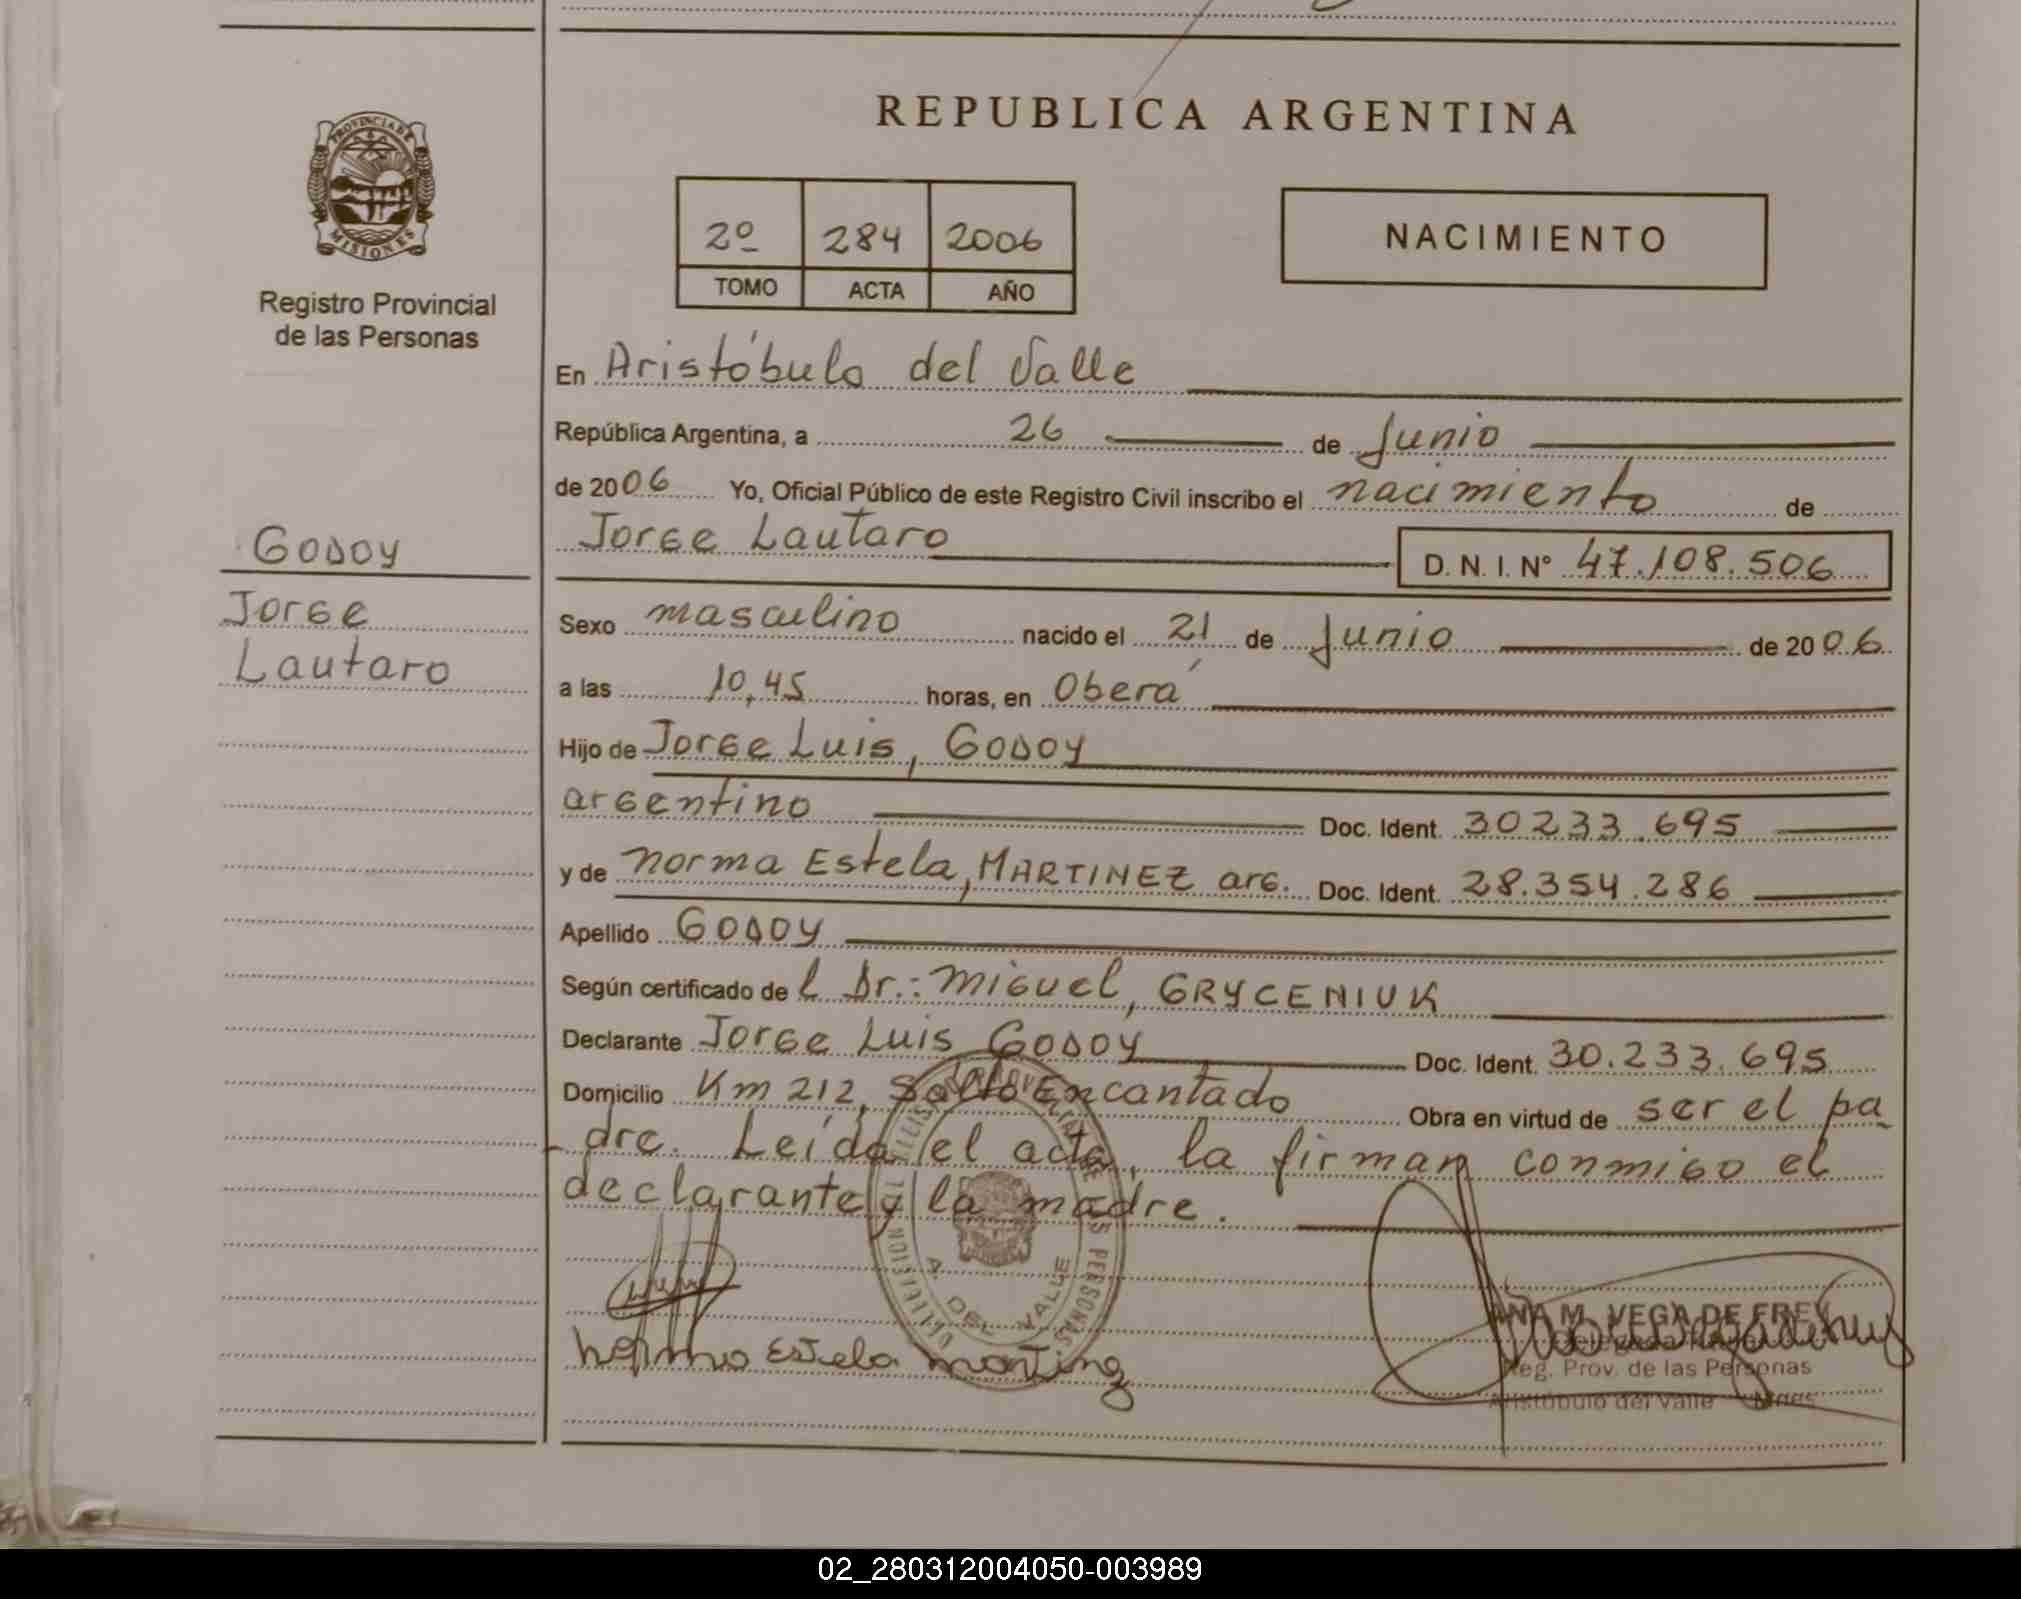 PROVINCIA DE
MISIONES
Registro Provincial
de las Personas
GODOY
Jorge
Lautaro
REPUBLICA ARGENTINA
2º 284 2006
TOMO ACTA AÑO
NACIMIENTO
En Aristóbulo del Valle
República Argentina, a 26 de Junio
de 2006 Yo, Oficial Público de este Registro Civil inscribo el nacimiento de
Jorge Lautaro D. N. I. Nº 47.108.506
Sexo masculino nacido el 21 de Junio de 2006
a las 10,45 horas, en Oberá
Hijo de Jorge Luis, GODOY
argentino Doc. Ident. 30233.695
y de Norma Estela, MARTINEZ arg. Doc. Ident. 28.354.286
Apellido GODOY
Según certificado del Dr.: Miguel, GRYCENIUK
Declarante Jorge Luis GODOY Doc. Ident. 30.233.695
Domicilio Km 212, Salto Encantado Obra en virtud de ser el pa
-dre. Leída el acta, la firman conmigo el
declarante y la madre.
A. DEL VALLE
ANA M. VEGA DE FREY
Reg. Prov. de las Personas
Aristóbulo del Valle Mnes
Norma Estela Martinez
02_280312004050-003989